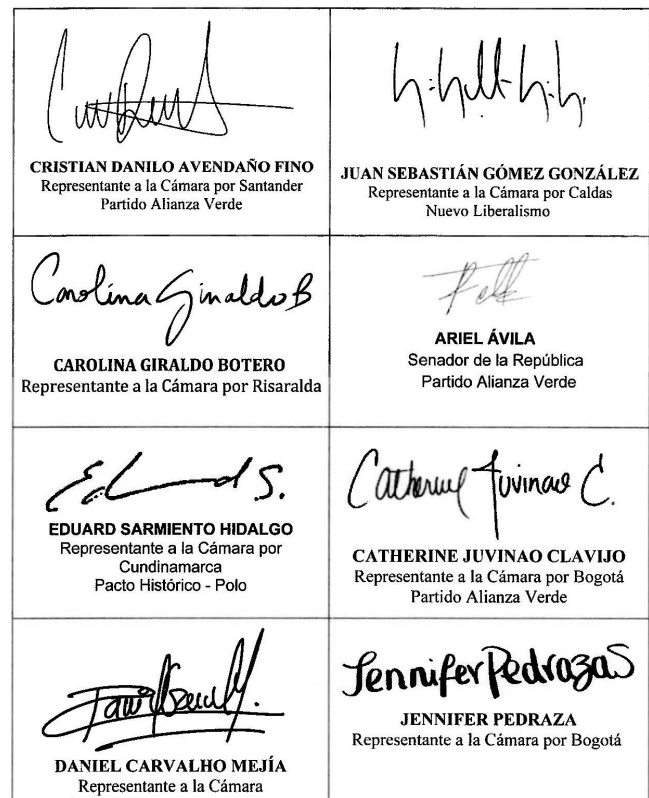 CRISTIAN DANILO AVENDAÑO FINO
Representante a la Cámara por Santander
Partido Alianza Verde
JUAN SEBASTIÁN GÓMEZ GONZÁLEZ
Representante a la Cámara por Caldas
Nuevo Liberalismo
Carolina Giraldo B
CAROLINA GIRALDO BOTERO
Representante a la Cámara por Risaralda
ARIEL ÁVILA
Senador de la República
Partido Alianza Verde
EDUARD SARMIENTO HIDALGO
Representante a la Cámara por
Cundinamarca
Pacto Histórico - Polo
Catherine Juvinao C.
CATHERINE JUVINAO CLAVIJO
Representante a la Cámara por Bogotá
Partido Alianza Verde
DANIEL CARVALHO MEJÍA
Representante a la Cámara
Jennifer Pedraza S
JENNIFER PEDRAZA
Representante a la Cámara por Bogotá